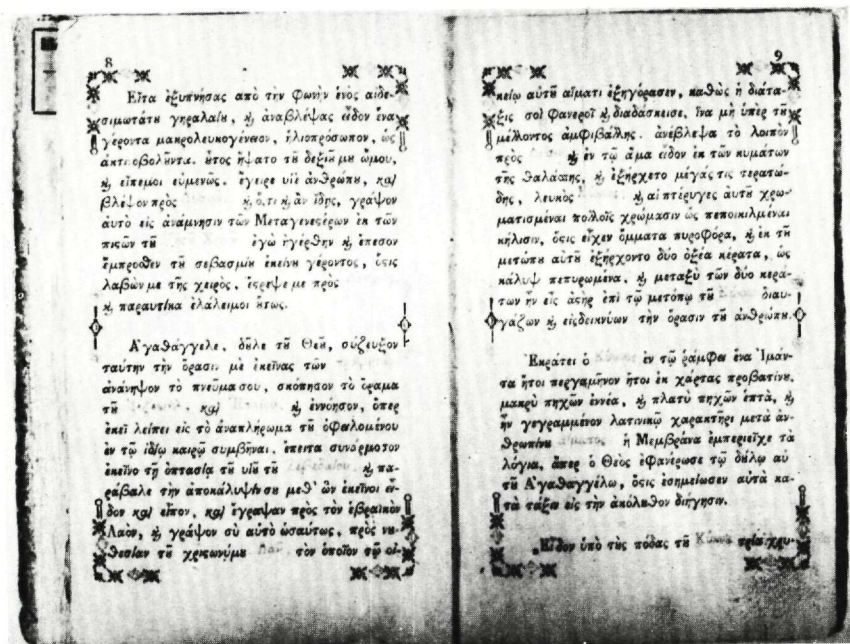 8
Εἶτα ἐξυπνήσας ἀπὸ τὴν Φωνὴν ἑνὸς αἰδε-
σιμωτάτȣ γηραλαίȣ, ϗ ἀναβλέψας εἶδον ἕνα
γέροντα μακρολευκογένειον, ἡλιοπρόσωπον, ὡς
ἀκτινοβολȣντα. ȣτος ἥψατο τȣ δεξιȣ μȣ ὤμου,
ϗ εἶπεμοι εὐμενῶς. ἔγειρε υἱὲ ἀνθρώπȣ, καὶ
βλέψον πρὸς ϗ ὅ,τι ϗ ἂν ἴδης, γράψον
αὐτὸ εἰς ἀνάμνησιν τῶν Μεταγενεϛέρων ἐκ τῶν
πιϛῶν τȣ ἐγὼ ἠγέρθην ϗ ἔπεσον
ἔμπροσθεν τȣ σεβασμίȣ ἐκείνȣ γέροντος, ὅϛις
λαβών με τῆς χειρὸς, ἔϛρεψε με πρὸς
ϗ παραυτίκα ἐλάλειμοι ȣτως.
Ἀγαθάγγελε, δȣλε τȣ Θεȣ, σύζευξον
ταύτην τὴν ὅρασιν μὲ ἐκείνας τῶν
ἀνάνηψον τὸ πνεῦμα σου, σκόπησον τὸ ὅραμα
τȣ καὶ ϗ ἐννόησον, ὅπερ
ἐκεῖ λείπει εἰς τὸ ἀναπλήρωμα τȣ ὀφειλομένου
ἐν τῷ ἰδίῳ καιρῷ συμβῆναι. ἔπειτα συνάρμοσον
ἐκεῖνο τῇ ὀπτασίᾳ τȣ υἱȣ τȣ ϗ πα-
ράβαλε τὴν ἀποκάλυψίν σȣ μεθ' ὧν ἐκεῖνοι εἶ-
δον καὶ εἶπον, καὶ ἔγραψαν πρὸς τὸν ἑβραϊκὸν
Λαὸν, ϗ γράψον σὺ αὐτὸ ὡσαύτως, πρὸς νȣ-
θεσίαν τȣ χριϛωνύμȣ Λαȣ, τὸν ὁποῖον τῷ οἰ-
9
κείῳ αὐτȣ αἵματι ἐξηγόρασεν, καθὼς ἡ διάτα-
ξις σοὶ Φανεροῖ ϗ διαδάσκεισε, ἵνα μὴ ὑπὲρ τȣ
μέλλοντος ἀμφιβάλλης. ἀνέβλεψα τὸ λοιπὸν
πρὸς ϗ ἐν τῷ ἅμα εἶδον ἐκ τῶν κυμάτων
τῆς θαλάσσης, ϗ ἐξήρχετο μέγάς τις τερατώ-
δης, λευκὸς ϗ αἱ πτέρυγες αὐτȣ χρω-
ματισμέναι πολλοῖς χρώμασιν ὡς πεποικιλμέναι
κήλισιν, ὅϛις εἶχεν ὄμματα πυροφόρα, ϗ ἐκ τȣ
μετώπȣ αὐτȣ ἐξήρχοντο δύο ὀξέα κέρατα, ὡς
κάλυψ πεπυρωμένα, ϗ μεταξὺ τῶν δύο κερά-
των ἦν εἷς ἀϛὴρ ἐπὶ τῷ μετόπῳ τȣ διαυ-
γάζων ϗ εἰσδεικνύων τὴν ὅρασιν τȣ ἀνθρώπȣ.
Ἐκράτει ὁ ἐν τῷ ῥάμφει ἕνα Ἱμάν-
τα ἤτοι περγαμῆνον ἤτοι ἐκ χάρτας προβατίνȣ,
μακρὺ πηχῶν ἐννέα, ϗ πλατὺ πηχῶν ἑπτὰ, ϗ
ἦν γεγραμμένον λατινικῷ χαρακτῆρι μετὰ ἀν-
θρωπίνȣ αἵματος. ἡ Μεμβράνα ἐμπεριεῖχε τὰ
λόγια, ἅπερ ὁ Θεὸς ἐφανέρωσε τῷ δȣλῳ αὐ
τȣ Ἀγαθαγγέλῳ, ὅϛις ἐσημείωσεν αὐτὰ κα-
τὰ τάξιν εἰς τὴν ἀκόλȣθον διήγησιν.
Εἶδον ὑπὸ τȣς πόδας τȣ Κύκνȣ τρία χρυ-